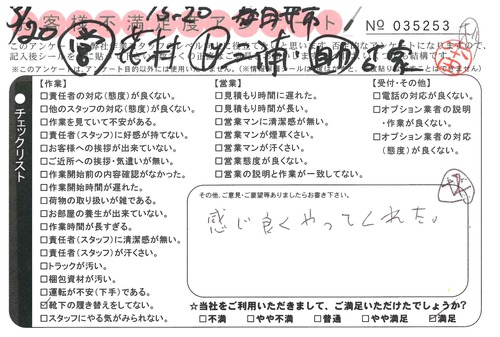 お客様不満足度アンケート
No 035253
【作業】
□責任者の対応(態度)が良くない。
□他のスタッフの対応(態度)が良くない。
□作業を見ていて不安がある。
□責任者(スタッフ)に好感が持てない。
□お客様への挨拶が出来ていない。
□ご近所への挨拶・気遣いが無い。
□作業開始前の内容確認がなかった。
□作業開始時間が遅れた。
□荷物の取り扱いが雑である。
□お部屋の養生が出来ていない。
□作業時間が長すぎる。
□責任者(スタッフ)に清潔感が無い。
□責任者(スタッフ)が汗くさい。
□トラックが汚い。
□梱包資材が汚い。
□運転が不安(下手)である。
☑靴下の履き替えをしてない。
□スタッフにやる気がみられない。
【営業】
□見積もり時間に遅れた。
□見積もり時間が長い。
□営業マンに清潔感が無い。
□営業マンが煙草くさい。
□営業マンが汗くさい。
□営業態度が良くない。
□営業の説明と作業が一致してない。
【受付・その他】
□電話の対応が良くない。
□オプション業者の説明
・作業が良くない。
□オプション業者の対応
(態度)が良くない。
チェックリスト
その他、ご意見・ご要望等ありましたらお書き下さい。
感じ良くやってくれた。
☆当社をご利用いただきまして、ご満足いただけたでしょうか?
□不満 □やや不満 □普通 □やや満足 ☑満足